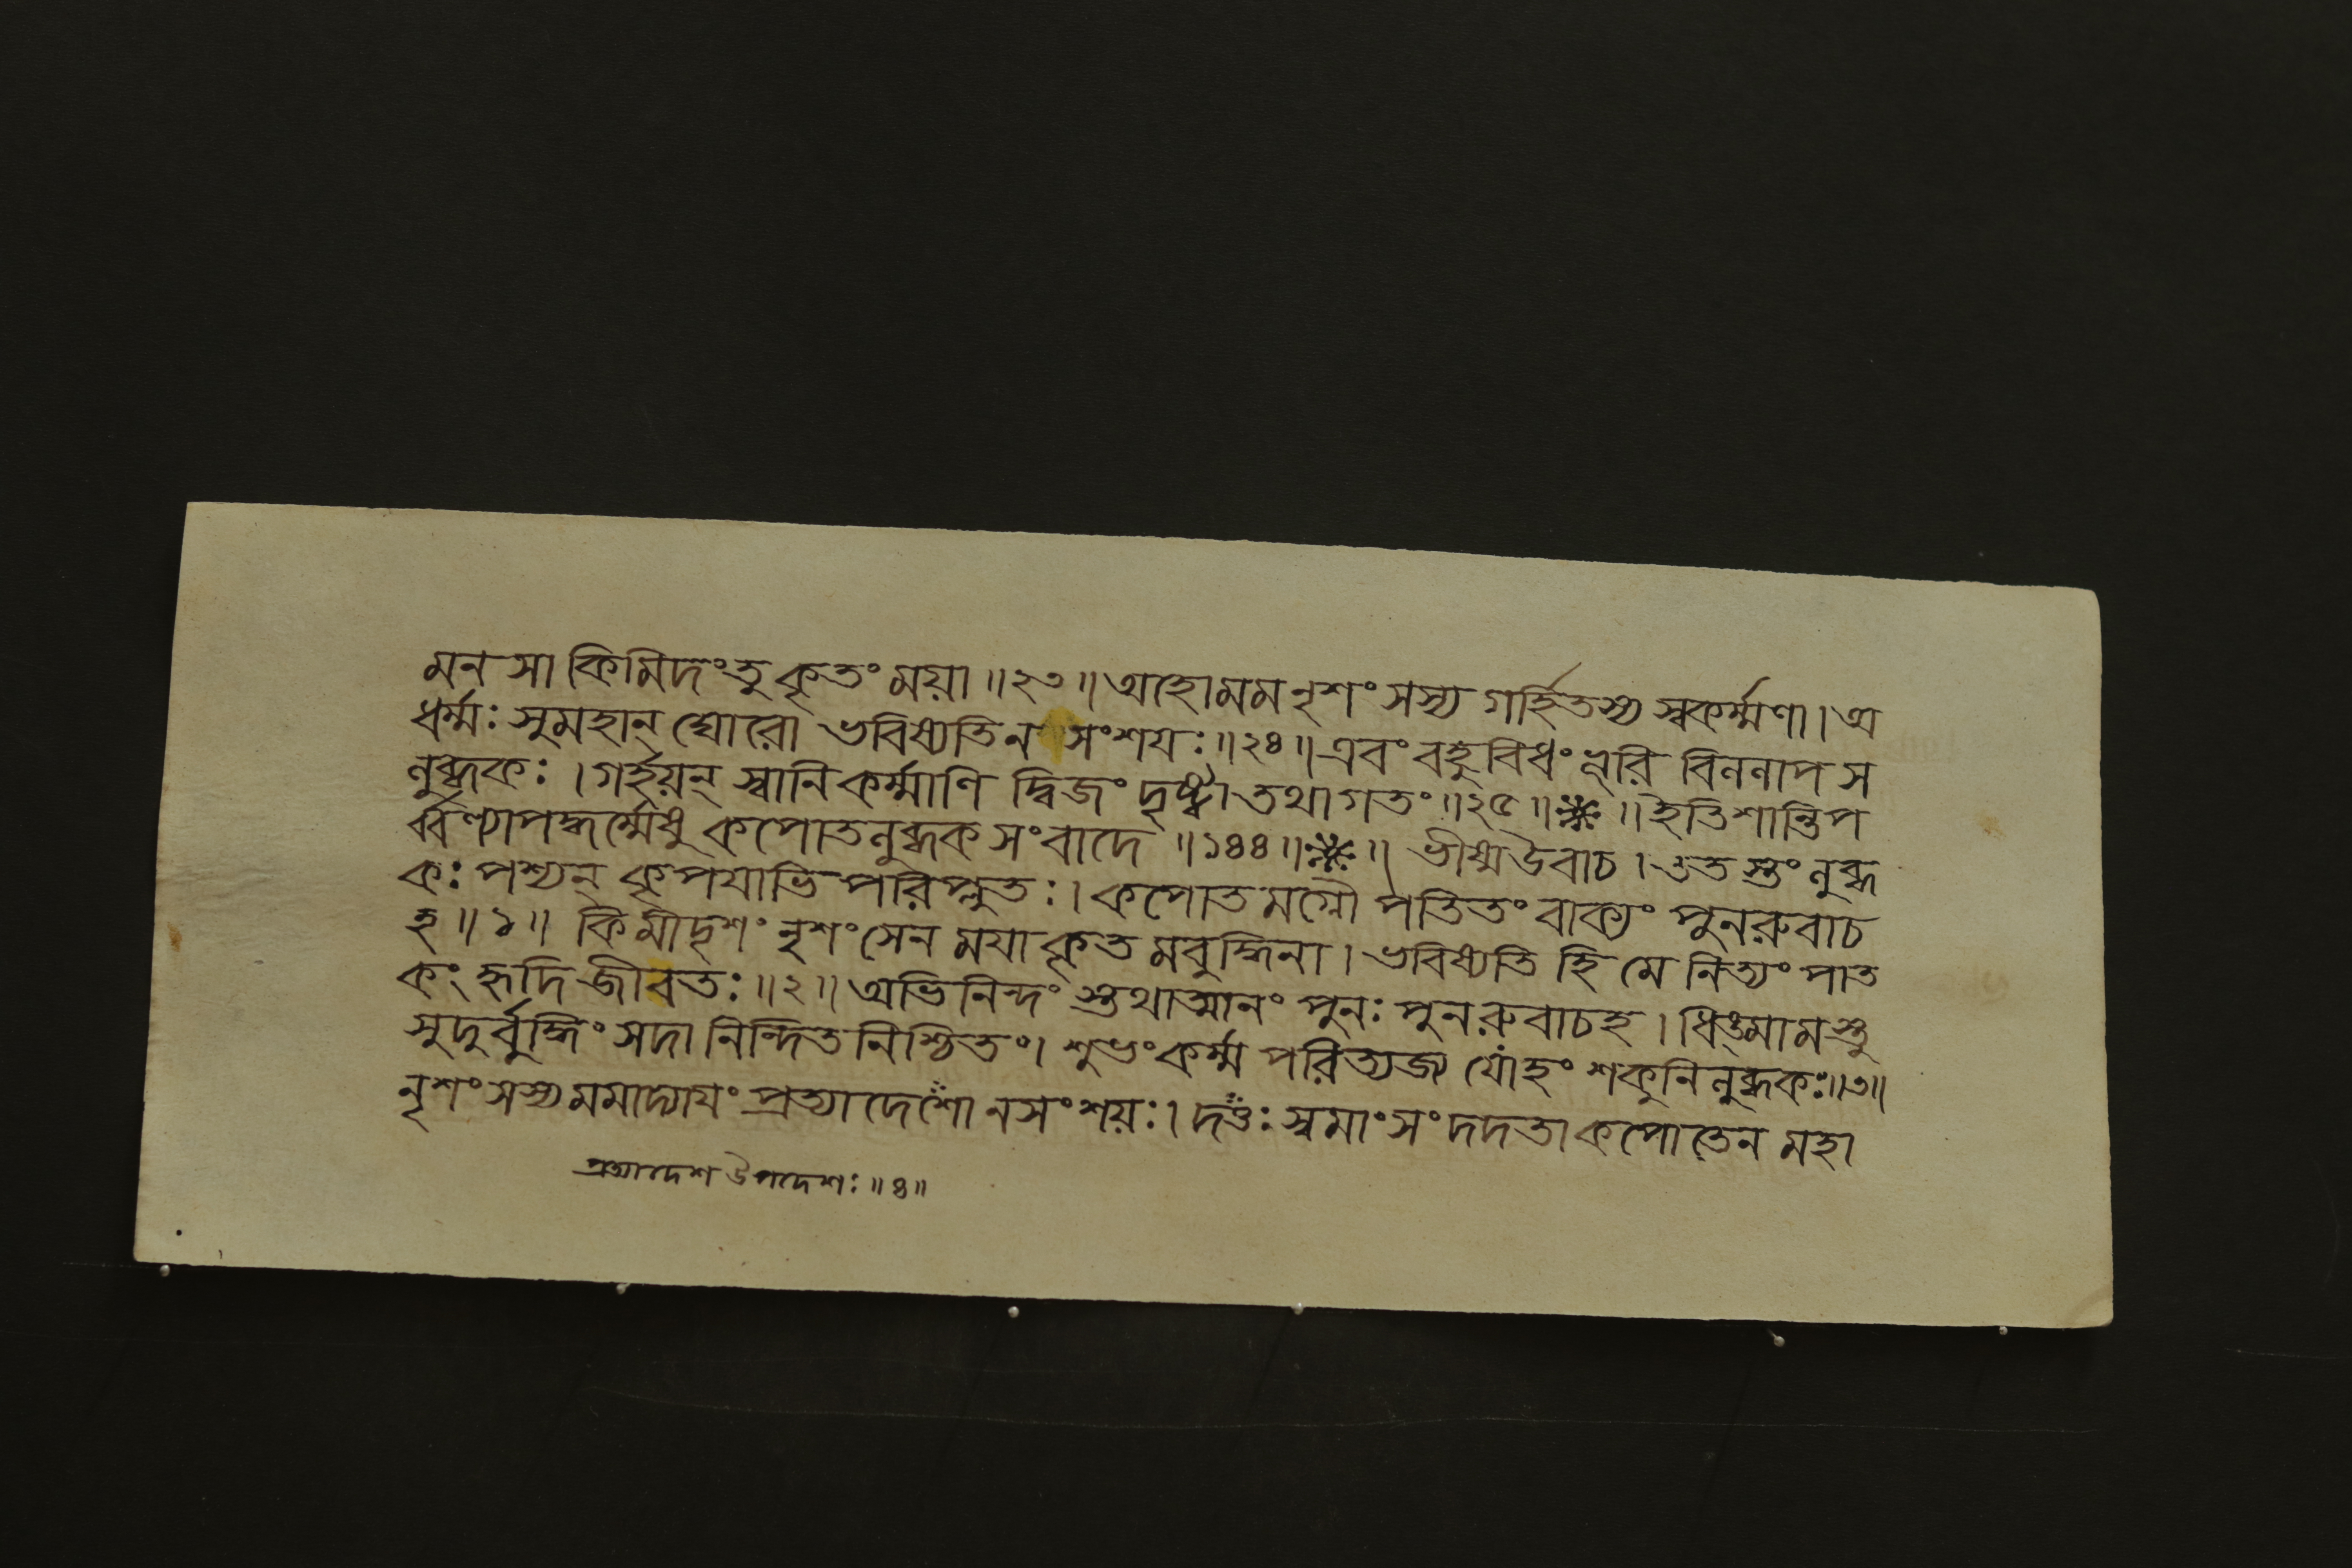 মনসা কিমিদংতু কৃতং ময়া ॥২৩॥ অহোমম নৃশংসস্য গর্হিতস্য স্বকর্ম্মণা । অ
ধর্ম্মঃ সুমহান্ ঘোরো ভবিষ্যতি ন সংশয়ঃ ॥২৪॥ এবং বহুবিধং ভূরি বিললাপ স
লুব্ধকঃ । গর্হয়ন্ স্বানি কর্ম্মাণি দ্বিজং দৃষ্ট্বা তথাগতং ॥২৫॥ ॥ ইতি শান্তিপ
র্ব্বণ্যাপদ্ধর্ম্মেষু কপোতলুব্ধকসংবাদে ॥১৪৪॥ ॥ ভীষ্মউবাচ । ততস্তং লুব্ধ
কঃ পশ্যন্ কৃপয়াভিপরিপ্লুতঃ । কপোতমগ্নৌ পতিতং বাক্যং পুনরুবাচ
হ ॥১॥ কিমীদৃশং নৃশংসেন ময়া কৃতমবুদ্ধিনা । ভবিষ্যতি হি মে নিত্যং পাত
কং হৃদি জীবতঃ ॥২॥ অভিনিন্দং স্তথাত্মানং পুনঃ পুনরুবাচহ । ধিঙ্মামস্তু
সুদুর্বুদ্ধিং সদা নিন্দিতনিশ্চিতং । শুভং কর্ম্ম পরিত্যজ্য যোহং শকুনিলুব্ধকঃ ॥৩॥
নৃশংসস্যমমাদ্যায়ং প্রত্যাদেশো নসংশয়ঃ । দত্তঃ স্বমাংসং দদতা কপোতেন মহা
প্রত্যাদেশ উপদেশঃ ॥৪॥